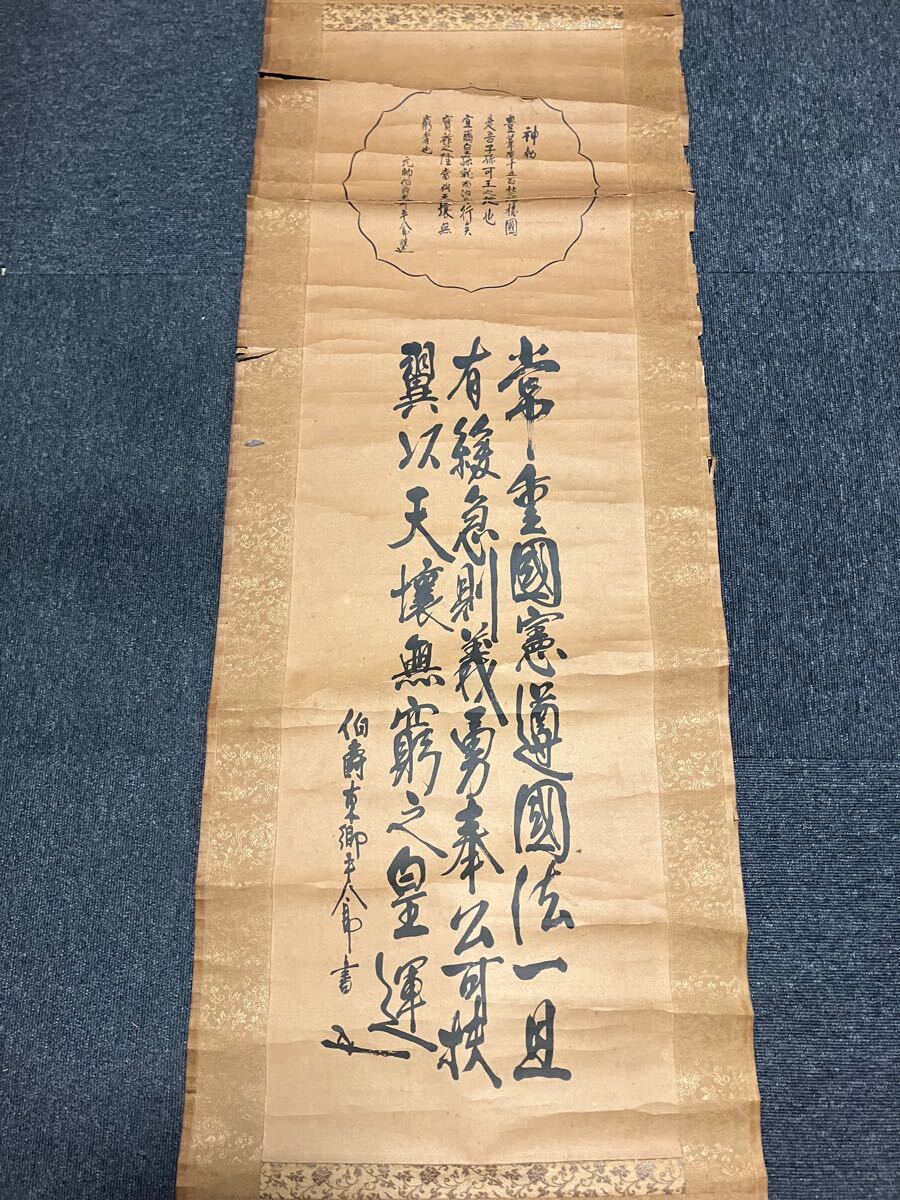 神勅
豊葦原千五百秋之瑞穂國
是吾子孫可王之地也
宜爾皇孫就而治焉行矣
寳祚之隆當與天壌無
窮者也
元帥伯爵東郷平八郎謹
常重國憲遵國法一旦
有緩急則義勇奉公可扶
翼以天壌無窮之皇運
伯爵東郷平八郎書